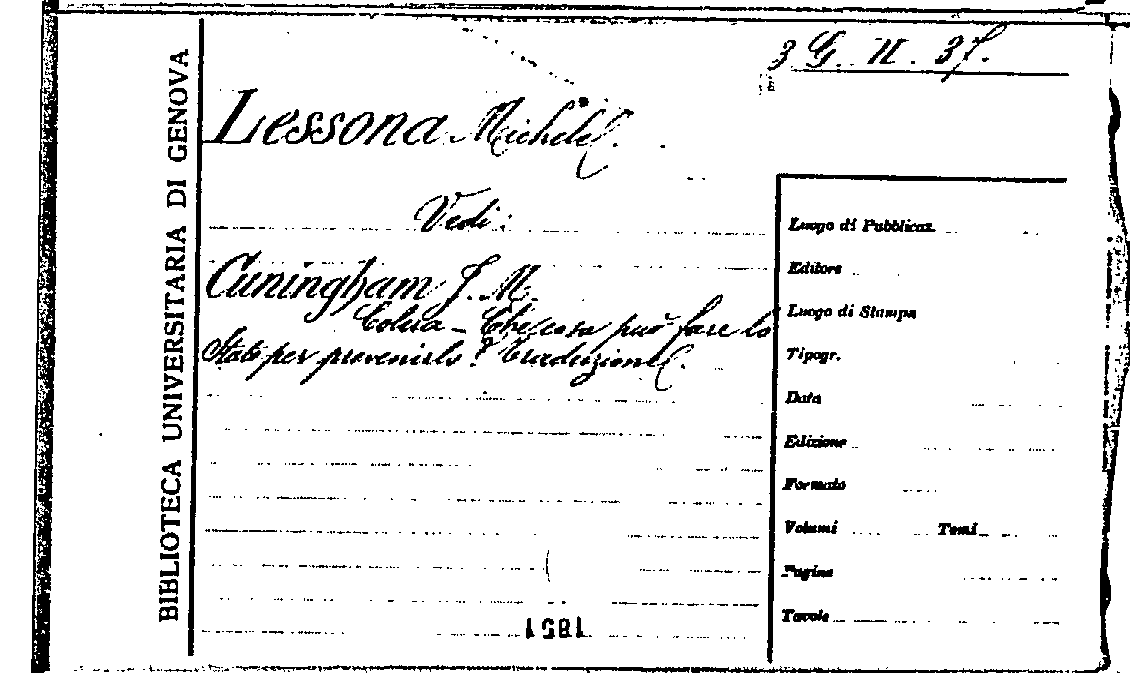 3 G. II. 37.
BIBLIOTECA UNIVERSITARIA DI GENOVA
Lessona Michele.
Vedi:
Cuningham J. M.
Colera - Che cosa può fare lo
Stato per prevenirlo? Traduzione.
Luogo di Pubblicaz.
Editore
Luogo di Stampa
Tipogr.
Data
Edizione
Formato
Volumi Tomi
Pagine
Tavole